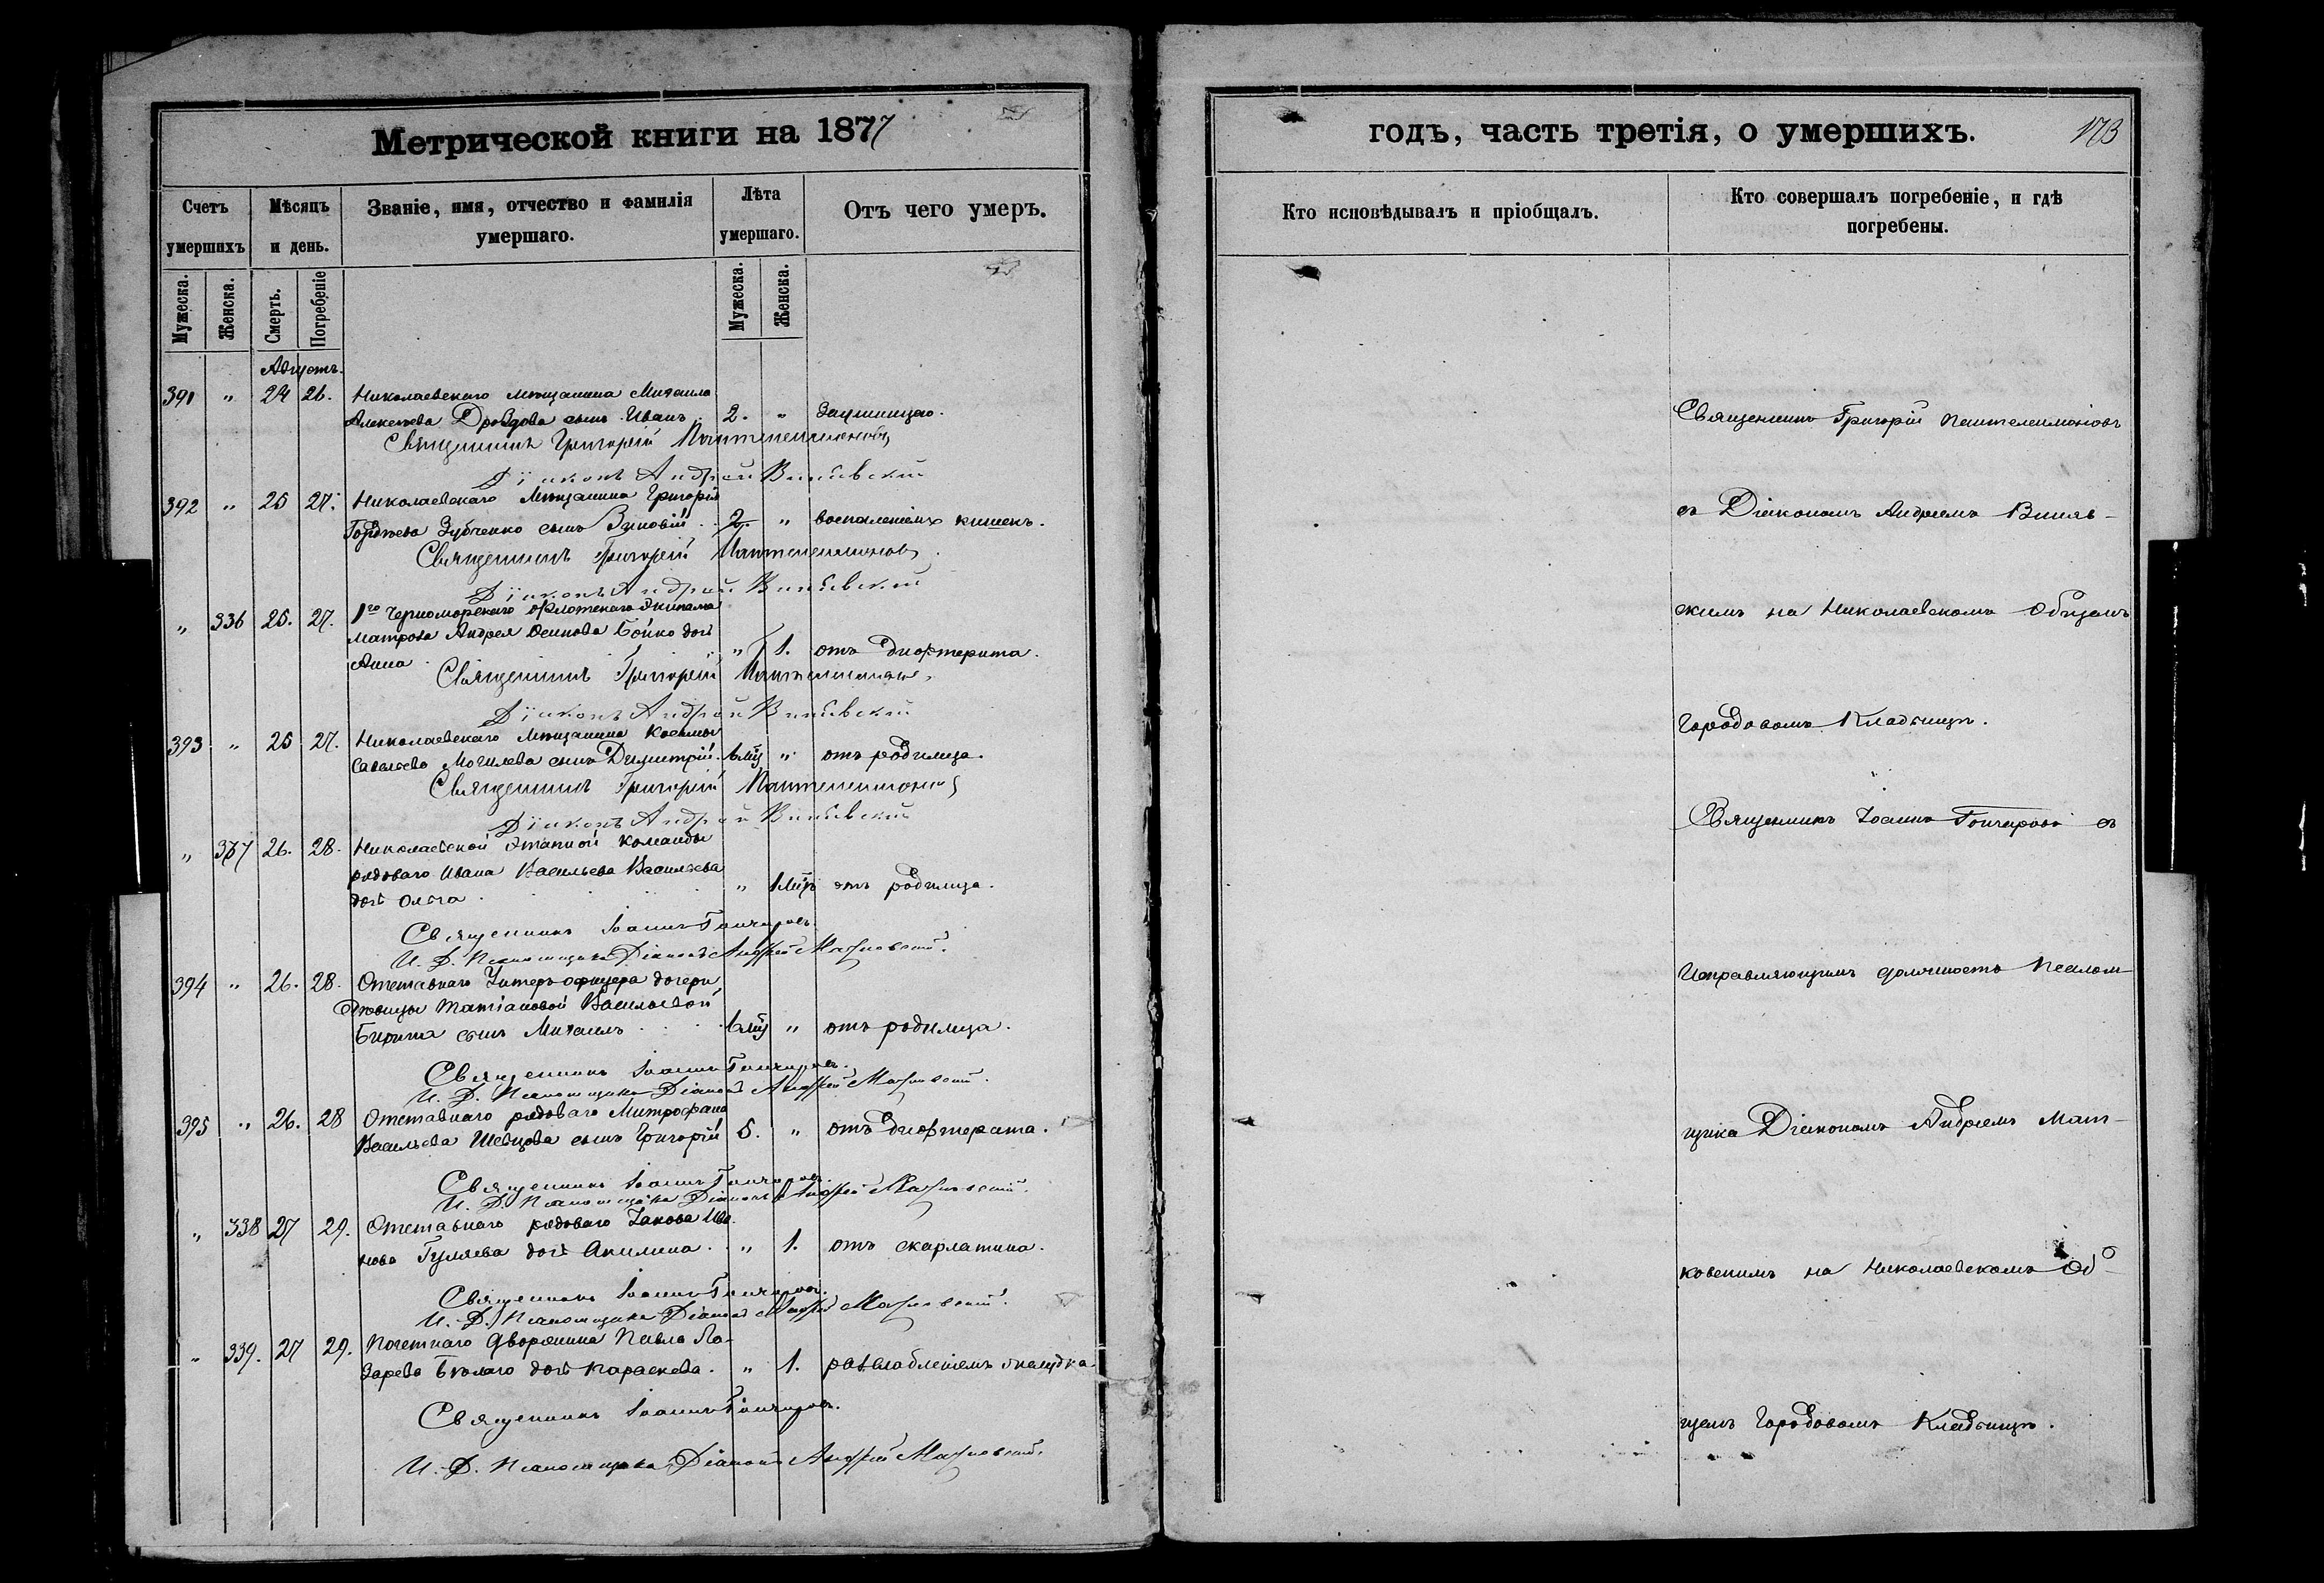 Метрической книги на 1877
Счетъ умершихъ
Мѣсяцъ и день.
Званіе, имя, отчество и фамилія умершаго.
Лѣта умершаго.
Отъ чего умеръ.
Мужеска.
Женска.
Смерть.
Погребеніе
Мужеска.
Женска.
Августъ.
391 " 24 26. Николаевскаго мѣщанина Михаила
Алексѣева Дроздова сынъ Иванъ. 2. "
Священникъ Григорій Пантелеимоновъ
Діаконъ Андрей
392 " 25 27. Николаевскаго Мѣщанина Григорія
Гордѣева Зубченко сынъ Зиновій. 2. " воспаленіемъ кишекъ.
Священникъ Григорій Пантелеимоновъ
Діаконъ Андрей
" 336 25. 27. 1го Черноморскаго флотскаго экипажа
матроса Андрея Осипова Бойко дочь
Анна. " 1. отъ дифтерита.
Священникъ Григорій Пантелеимоновъ
Діаконъ Андрей
393 " 25 27. Николаевскаго Мѣщанина Косьмы
Савельева Могилева сынъ Димитрій. " отъ родимца.
Священникъ Григорій Пантелеимоновъ
Діаконъ Андрей
" 337 26. 28. Николаевской этапной команды
рядоваго Ивана Васильева Васильева
дочь Ольга. " отъ родимца.
Священникъ Іоаннъ Гончаровъ.
И. Д. Псаломщика Діаконъ Андрей
394 " 26. 28. Отставнаго Унтеръ-офицера дочери
дѣвицы Татіановой Васильевой
сынъ Михаилъ " отъ родимца.
Священникъ Іоаннъ Гончаровъ.
И. Д. Псаломщика Діаконъ Андрей
395 " 26. 28 Отставнаго рядоваго Митрофана
Васильева Шевцова сынъ Григорій 5. " отъ дифтерита.
Священникъ Іоаннъ Гончаровъ.
И. Д. Псаломщика Діаконъ Андрей
" 338 27 29. Отставнаго рядоваго Іакова Ива-
нова Гуляева дочь Акилина. " 1. отъ скарлатина.
Священникъ Іоаннъ Гончаровъ.
И. Д. Псаломщика Діаконъ Андрей
" 339. 27 29. Почетнаго дворянина Павла Ла-
зарева Бѣлаго дочь Параскева. " 1.
Священникъ Іоаннъ Гончаровъ.
И. Д. Псаломщика Діаконъ Андрей
годъ, часть третія, о умершихъ.
173
Кто исповѣдывалъ и пріобщалъ.
Кто совершалъ погребеніе, и гдѣ погребены.
Священникъ Григорій Пантелеимоновъ
съ Діакономъ Андреемъ
скимъ на Николаевскомъ Общемъ
Городовомъ Кладбищѣ.
Священникъ Іоаннъ Гончаровъ съ
Исправляющимъ должность Псалом-
щика Діакономъ Андреемъ Мат-
ковскимъ на Николаевскомъ Об-
щемъ Городовомъ Кладбищѣ.